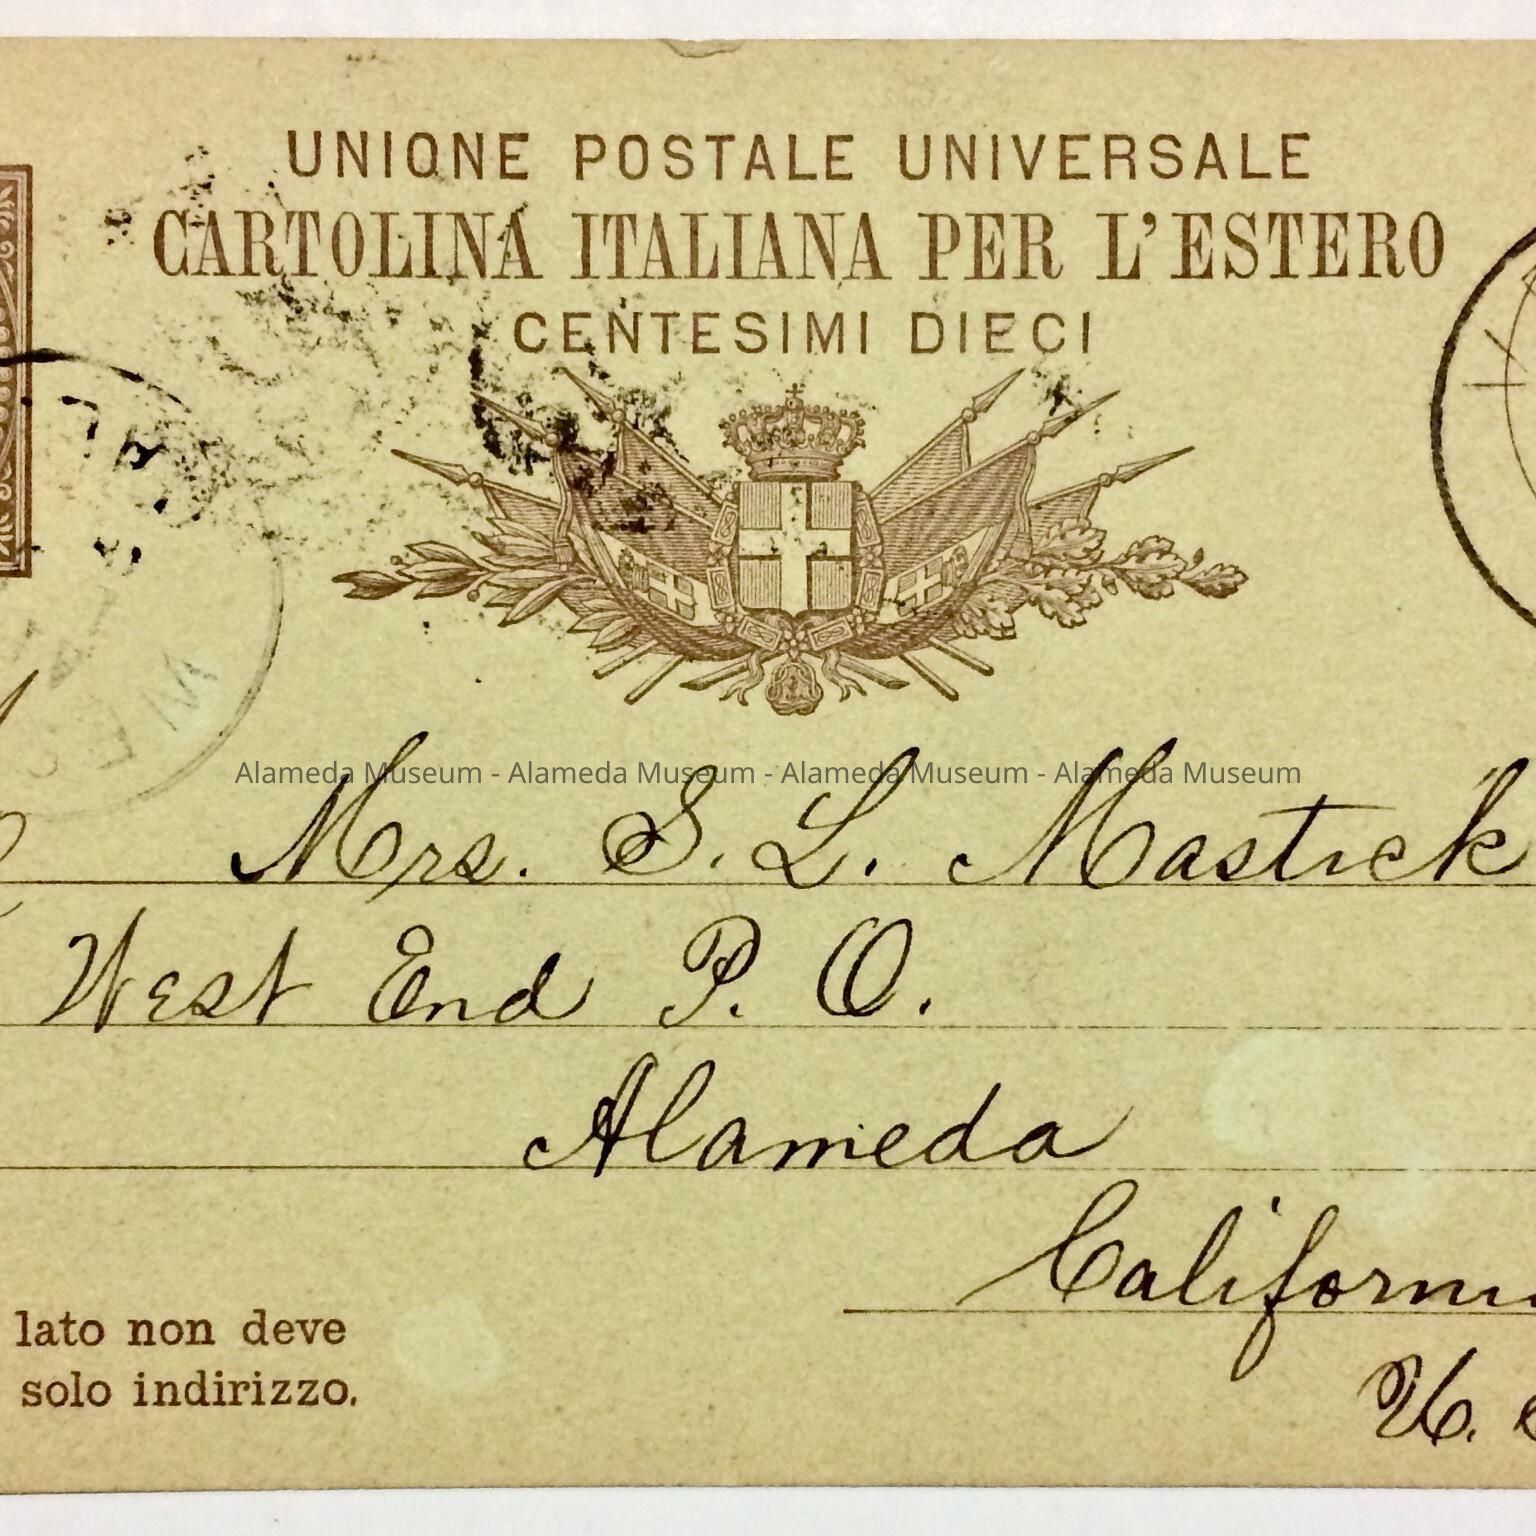 UNIONE POSTALE UNIVERSALE
CARTOLINA ITALIANA PER L'ESTERO
CENTESIMI DIECI
Alameda Museum - Alameda Museum - Alameda Museum - Alameda Museum
Mrs. S. L. Mastick
West End P. O.
Alameda
Californi
U. S
lato non deve
solo indirizzo.